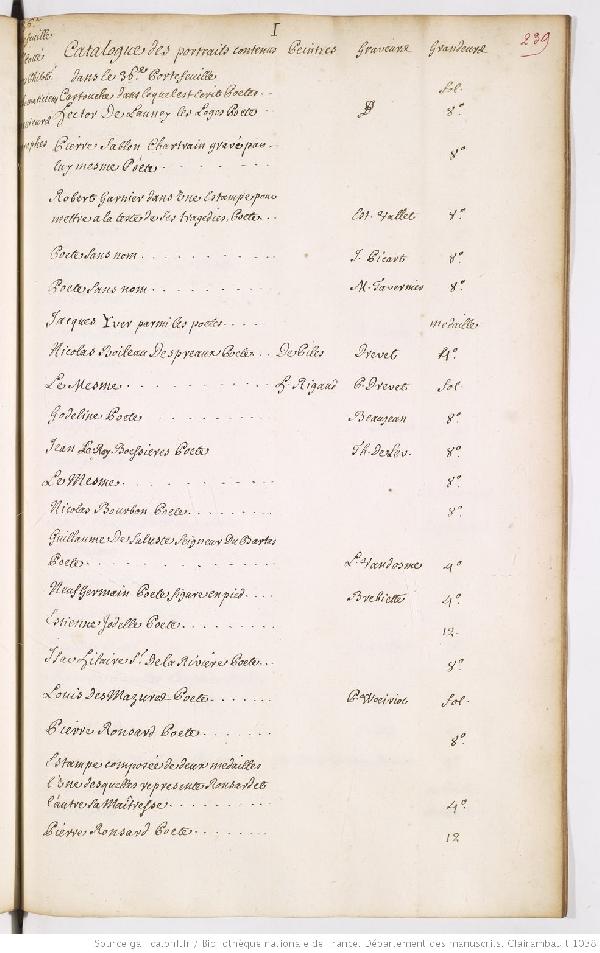 I
239
Catalogue des portraits contenus Peintres Graveurs Grandeurs
dans le 36.e Portefeuille
Cartouche dans lequel est écrit Poetes . . fol.
Hector De Launey les Logos Poete . . 8º.
Pierre Sablon Chartrain gravé par
luy mesme Poete . . . . 8º.
Robert Garnier dans Une Estampe pour
mettre a la teste de ses tragedies, Poete . . Est. Vallet 8º.
Poete sans nom . . . . J. Picart 8º.
Poete sans nom . . . . M. Tavernier 8º.
Jacques Yver parmi les poetes . . . . medaille
Nicolas Boileau Despreaux Poete . . De Piles Drevet 4º.
Le Mesme . . . . H. Rigaud P. Drevet fol.
Godeline Poete . . . . Beaujean 8º.
Jean Le Roy Boessieres Poete Th. De Leu. 8º.
Le Mesme . . . . 8º.
Nicolas Bourbon Poete . . . . 8º.
Guillaume De Saluste Seigneur Du Bartas
Poete . . . . L. Vandosme 4º.
Neuf Germain Poete figure en pied . . . Brebiette 4º.
Estienne Jodelle Poete . . . . 12.
Isac Lilaire S.r De la Rivière Poete . . . 8º.
Louis Des Mazures Poete . . . . P. Woeiriot fol.
Pierre Ronsard Poete . . . . 8º.
Estampe composée de deux medailles
l'Une desquelles represente Ronsard et
l'autre sa Maîtresse . . . . 4º.
Pierre Ronsard Poete . . . . 12
Source gallica.bnf.fr / Bibliothèque nationale de France. Département des manuscrits. Clairambault 1038